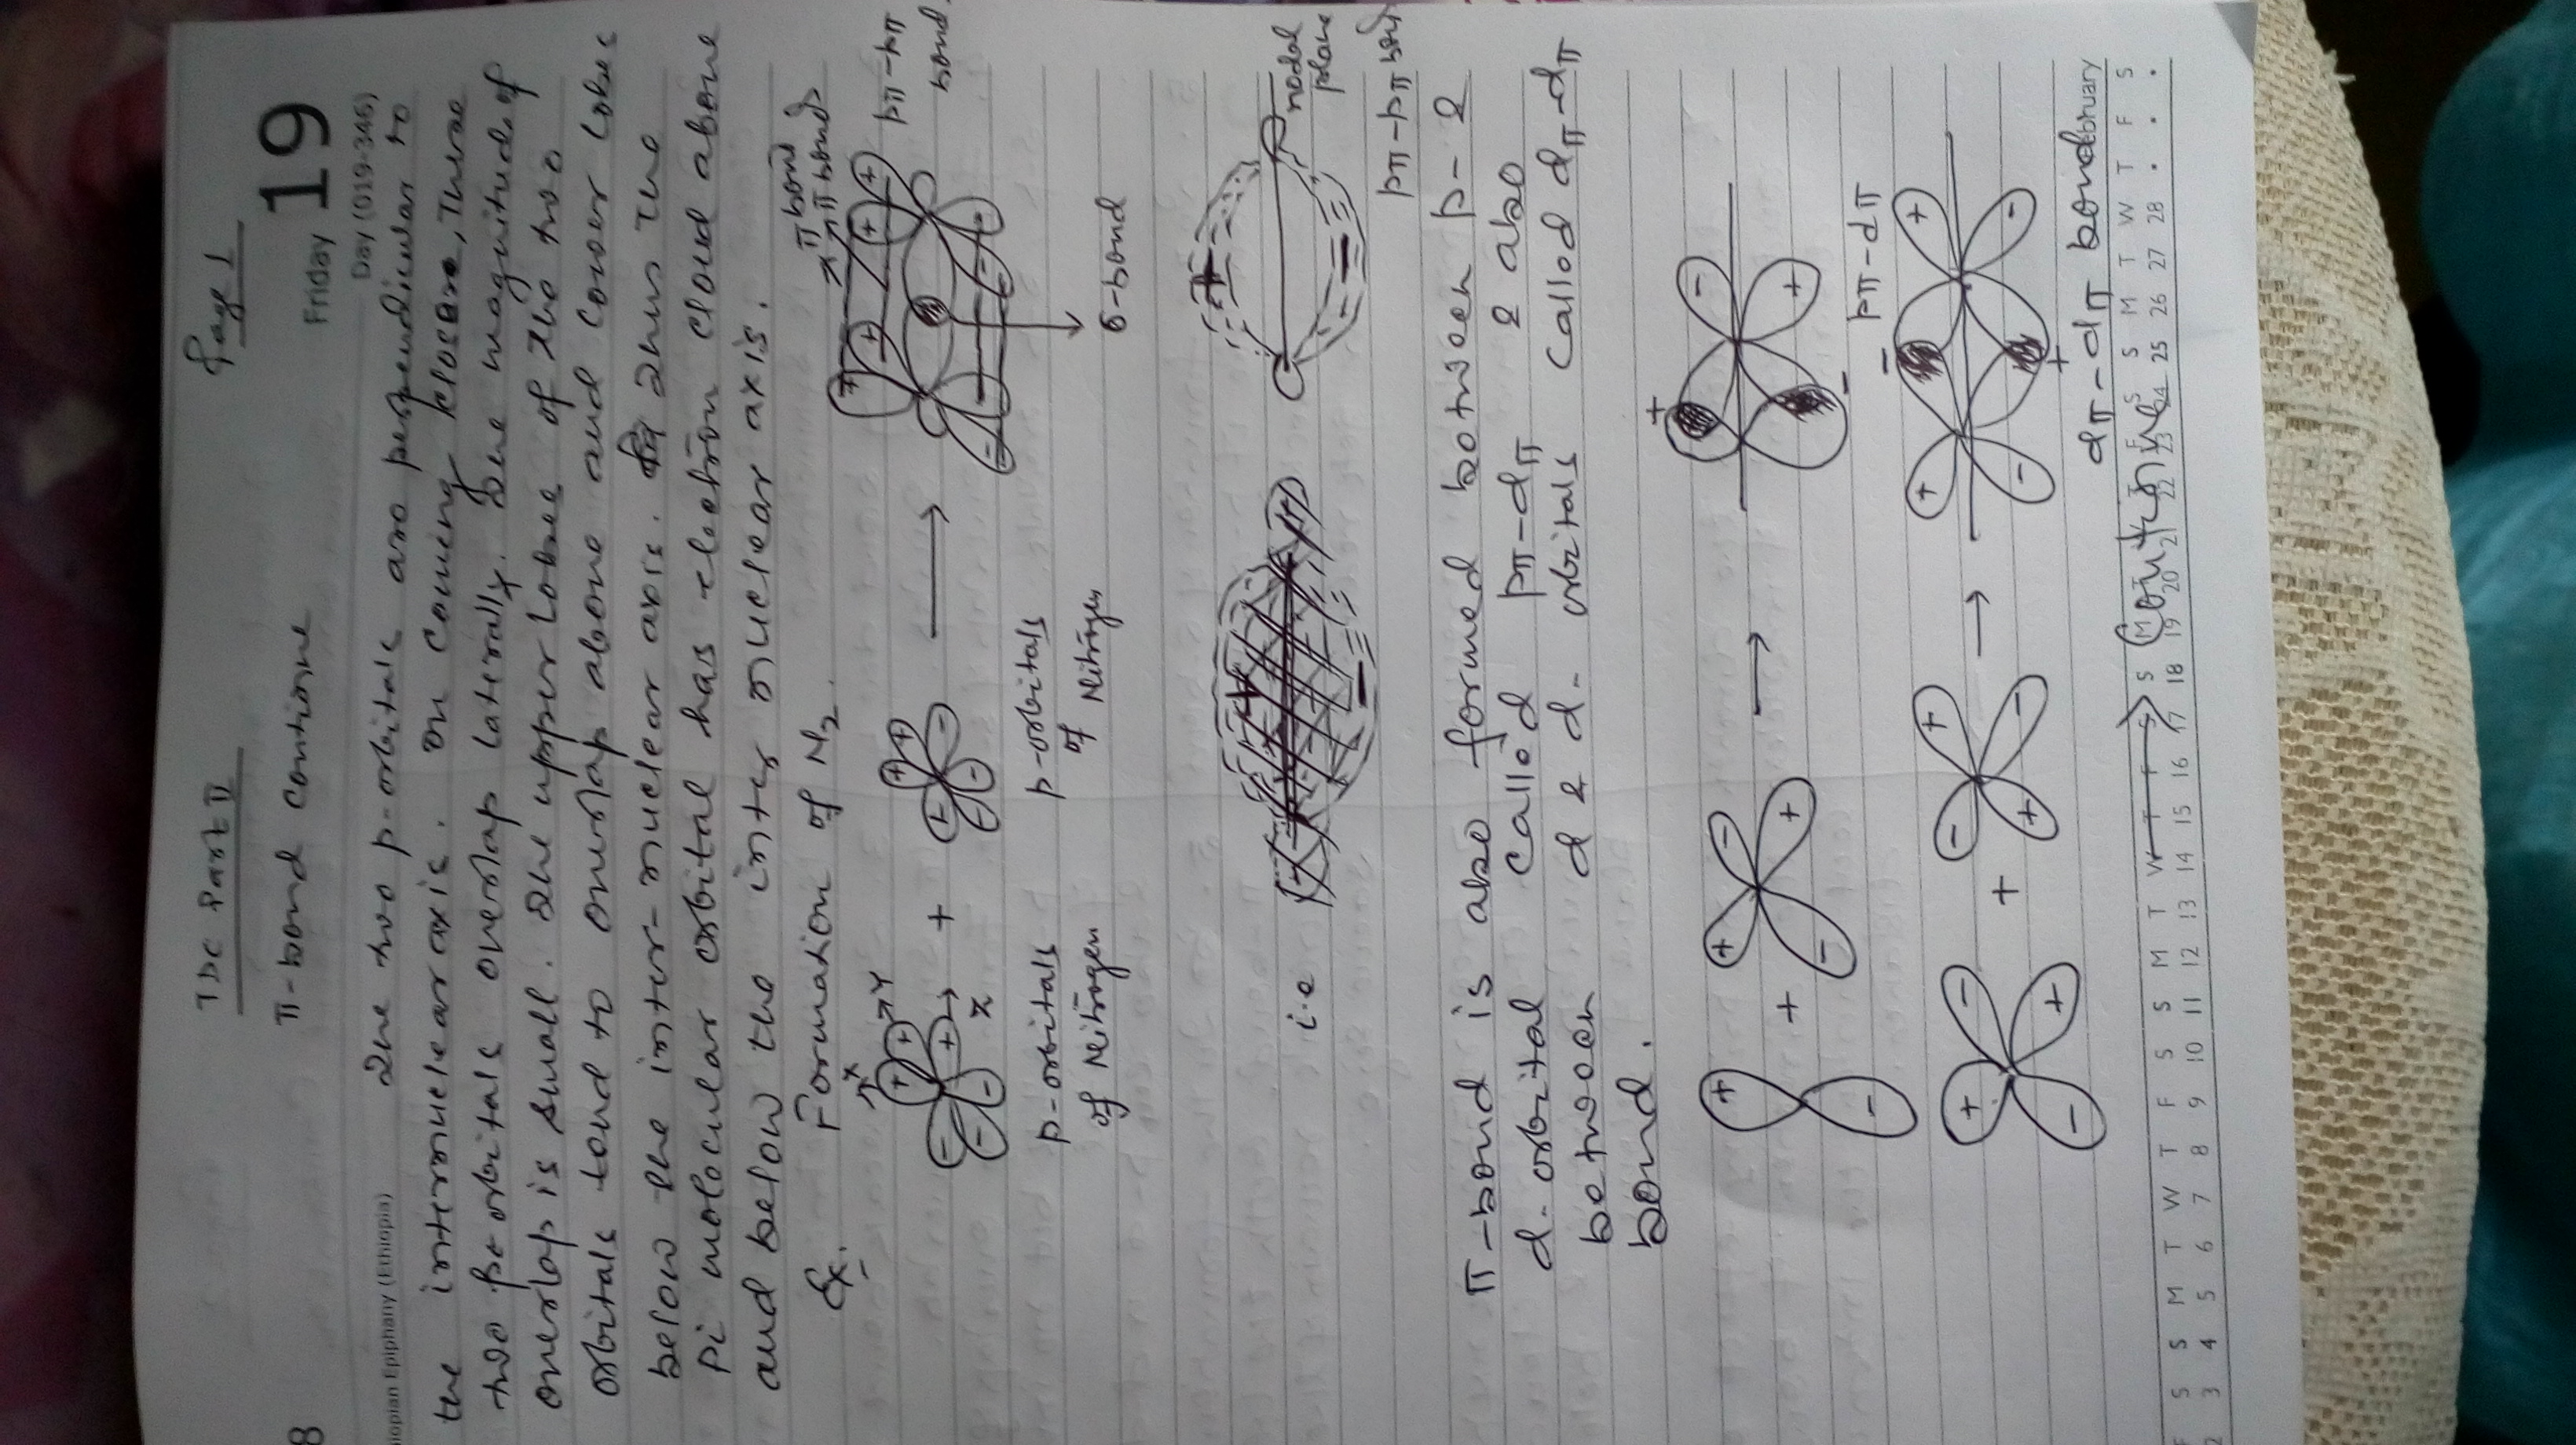 Page 1
TDC Part II
Friday 19
π-bond Continue
Day (019-346)
iopian Epiphany (Ethiopia)
The two p-orbitals are perpendicular to
the internuclear axis. On coming closer, These
two p-orbitals overlap laterally. The magnitude of
overlap is small. The upper lobes of the two
orbitals tend to overlap above and lower lobes
below the inter-nuclear axis. Thus the
pi molecular orbital has electron cloud above
and below the inter nuclear axis.
Ex. Formation of N2.
π bond
π bond
pπ-pπ
bond
x
Y
z
+
p-orbitals
of Nitrogen
p-orbitals
of Nitrogen
σ-bond
i.e
+
-
nodal
plane
pπ-pπ bond
π-bond is also formed between p- &
d-orbital called pπ-dπ & also
between d & d- orbitals called dπ-dπ
bond.
+ - + + - - +
+ - + -
pπ-dπ
+ - - + + - - + +
- + + - + -
dπ-dπ bond
Continue
February
F S S M T W T F S S M T W T F S S M T W T F S S M T W T F S
2 3 4 5 6 7 8 9 10 11 12 13 14 15 16 17 18 19 20 21 22 23 24 25 26 27 28 . . .